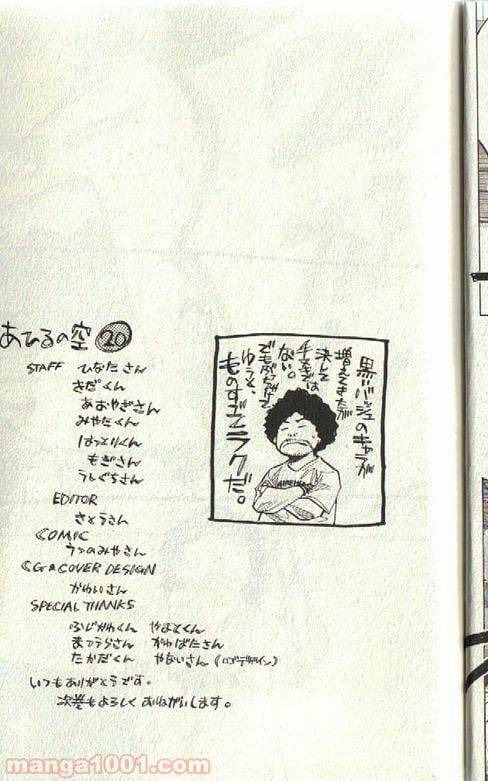 あひるの空 20
STAFF ひなたさん
きだくん
あおやぎさん
みやたくん
はっとりくん
もぎさん
うしぐちさん
EDITOR
さとうさん
COMIC
うつのみやさん
CG & COVER DESIGN
かわいさん
SPECIAL THANKS
ふじかわくん やまとくん
まつうらさん かわばたさん
たかだくん やないさん(ロゴデザイン)
いつもありがとうです。
次巻もよろしくおねがいします。
黒バッシュのキャラが
増えてきたが
決して
手立ては
ない。
でもぶっちゃけて
ゆうと
ものすごくラクだ。
manga1001.com